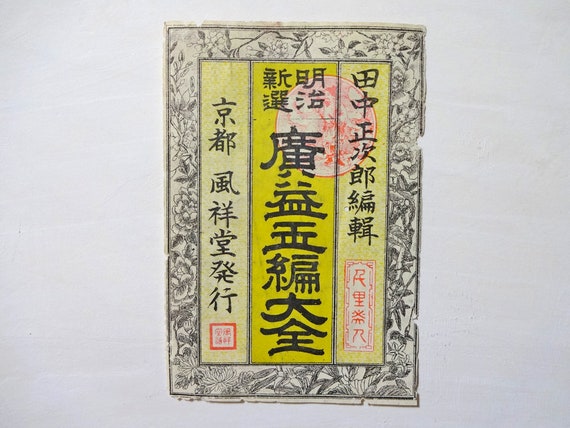 田中正次郎編輯
明治
新選
廣益正編大全
京都 風祥堂発行